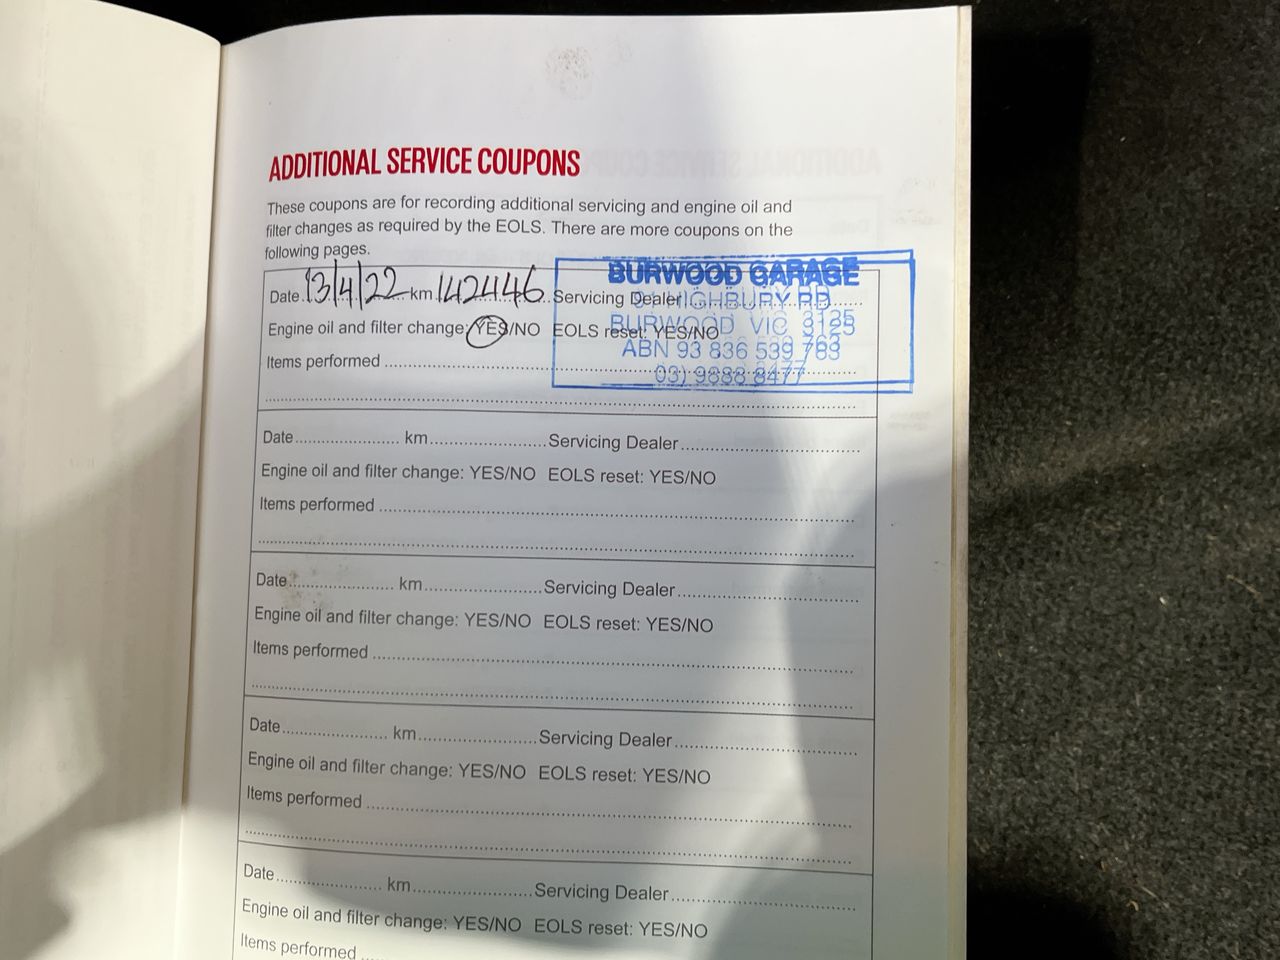 ADDITIONAL SERVICE COUPONS
These coupons are for recording additional servicing and engine oil and
filter changes as required by the EOLS. There are more coupons on the
following pages.
Date 13/4/22 km 142446 Servicing Dealer
BURWOOD GARAGE
HIGHBURY RD
BURWOOD VIC 3125
ABN 93 836 539 763
03) 9888 8477
Engine oil and filter change: YES/NO EOLS reset: YES/NO
Items performed
Date km Servicing Dealer
Engine oil and filter change: YES/NO EOLS reset: YES/NO
Items performed
Date km Servicing Dealer
Engine oil and filter change: YES/NO EOLS reset: YES/NO
Items performed
Date km Servicing Dealer
Engine oil and filter change: YES/NO EOLS reset: YES/NO
Items performed
Date km Servicing Dealer
Engine oil and filter change: YES/NO EOLS reset: YES/NO
Items performed